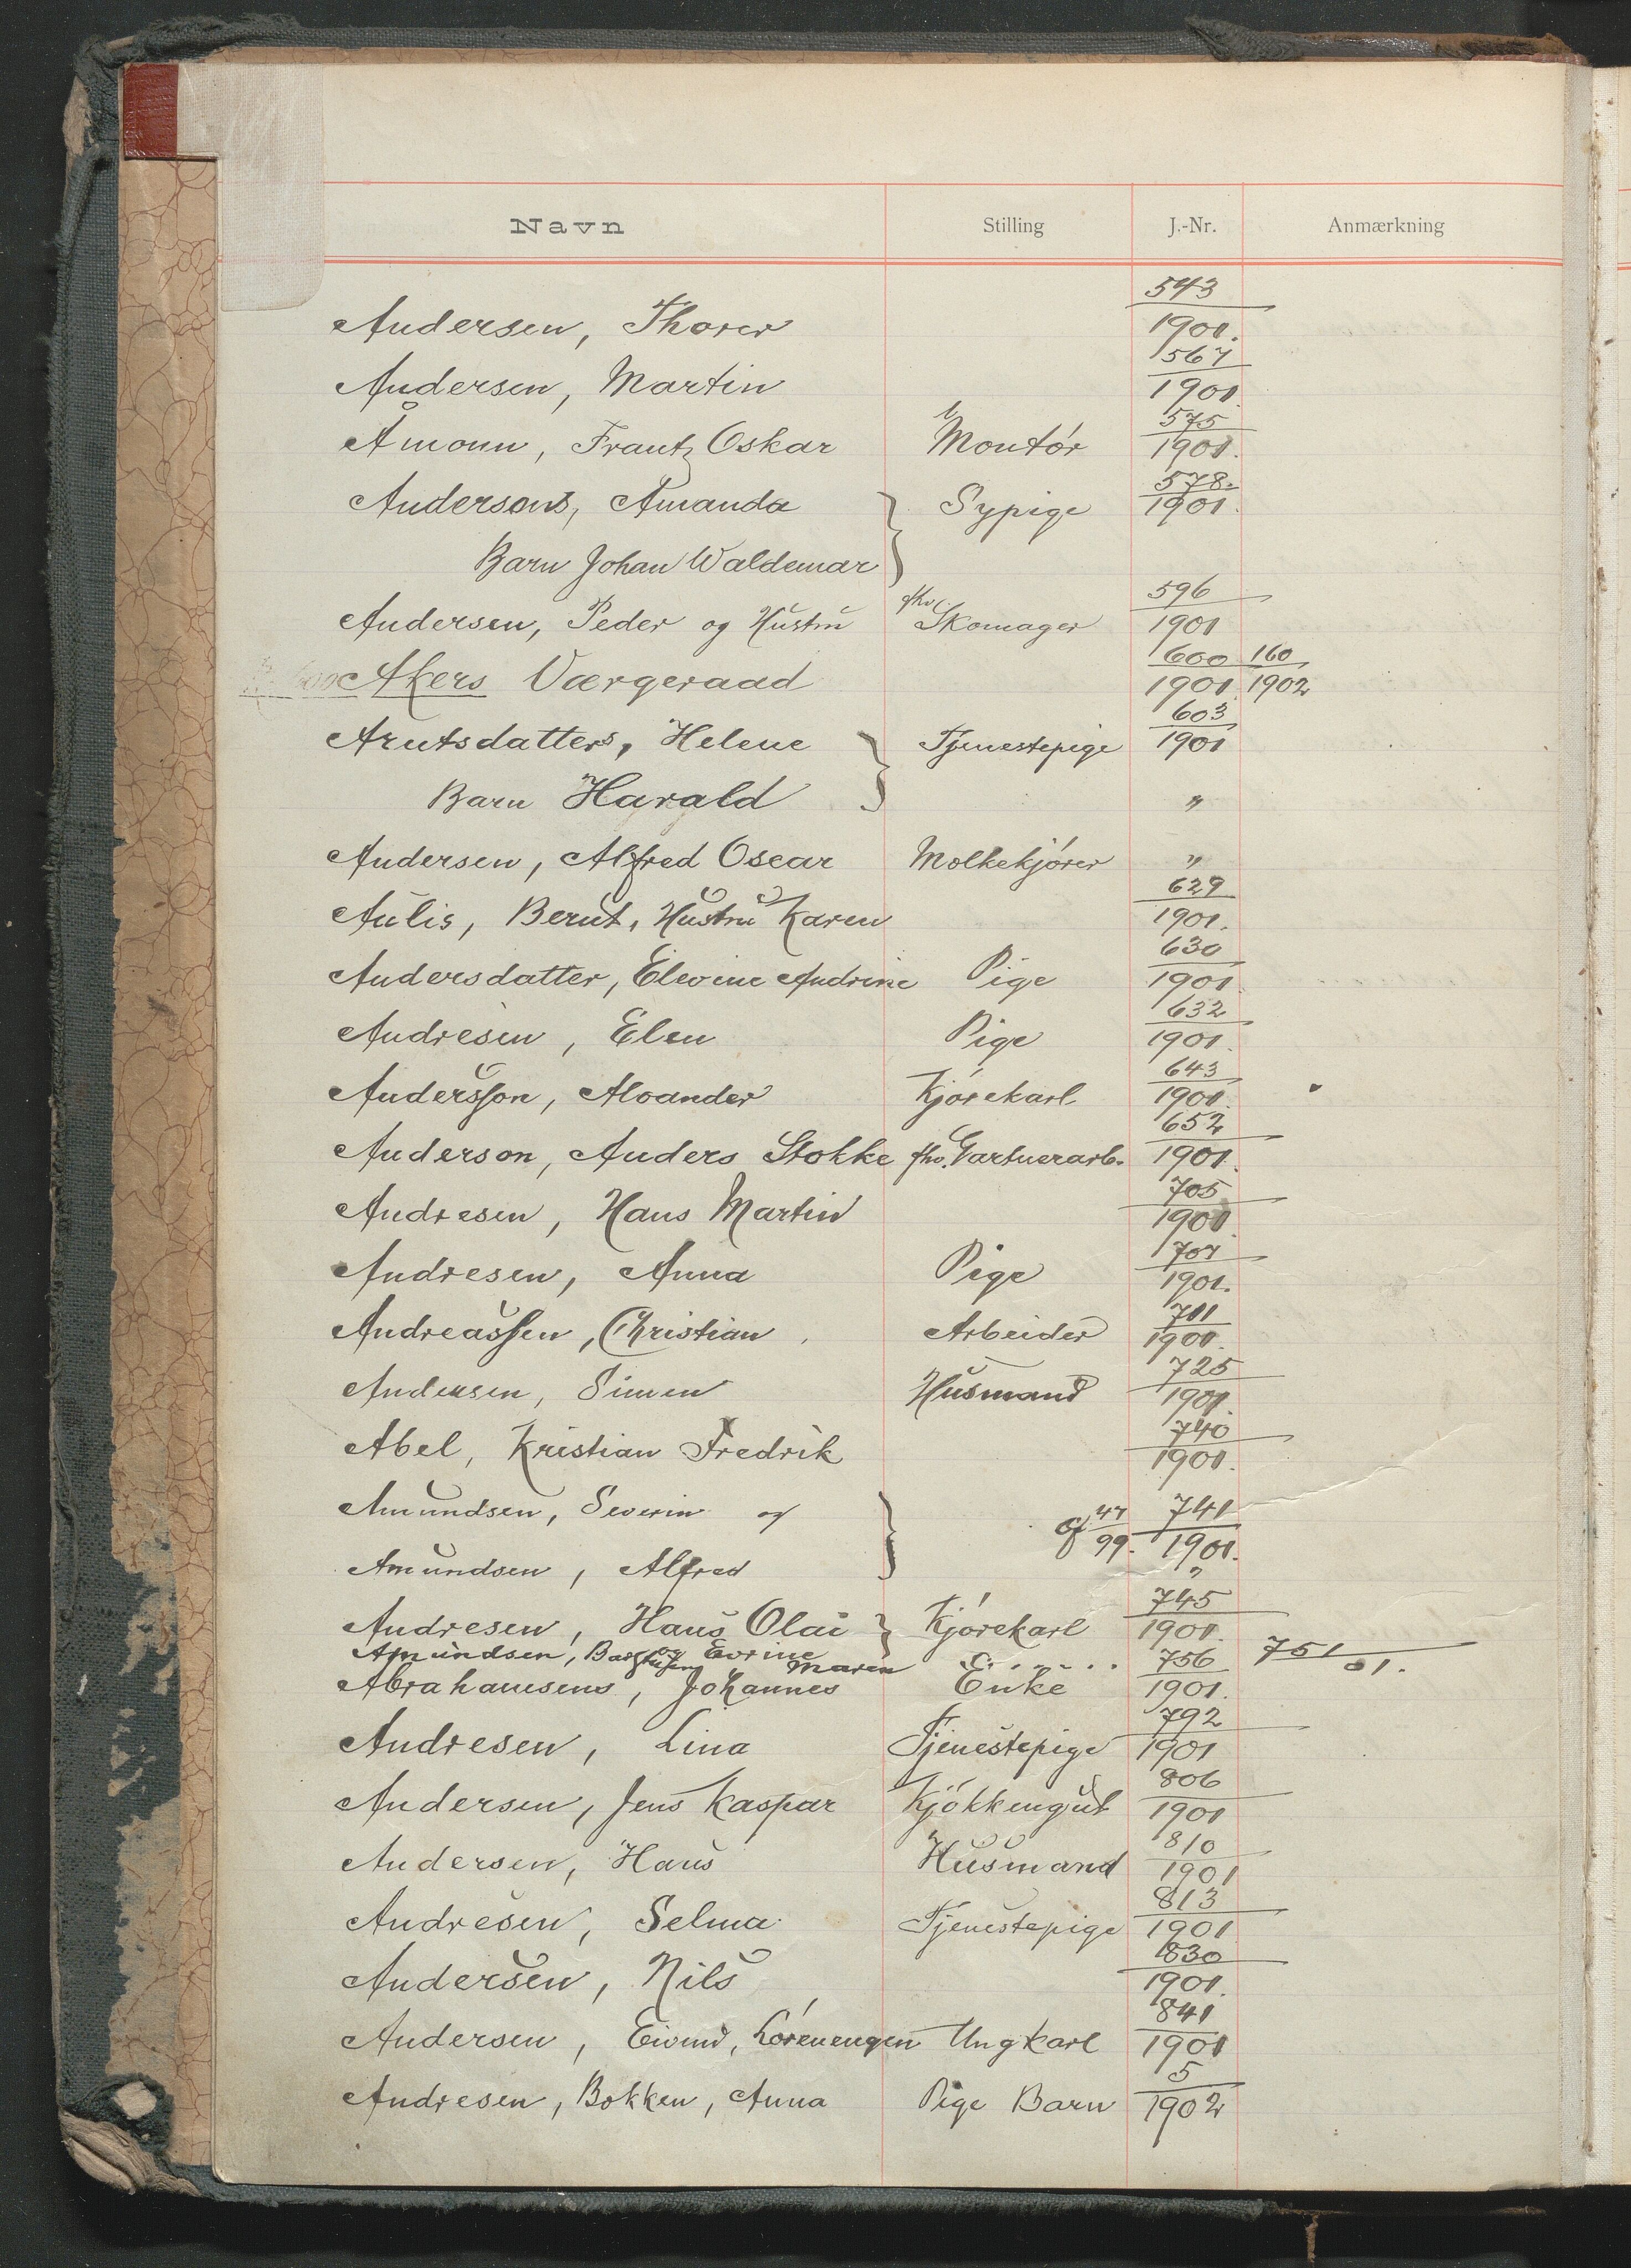 Navn Stilling J.-Nr. Anmærkning
Andersen, Thorer 543/1901.
Andersen, Martin 567/1901.
Åmonn, Frantz Oskar Montør 575/1901.
Andersons, Amanda Sypige 578./1901.
Barn Johan Waldemar
Andersen, Peder og Hustru fhv. Skomager 596/1901
Akers Værgeraad 600/1901 160/1902
Arntsdatters, Helene Tjenestepige 603/1901
Barn Harald "
Andersen, Alfred Oscar Molkekjører "
Aulis, Berut, Hustru Karen 629/1901.
Andersdatter, Elevine Andrine Pige 630/1901.
Andresen, Elen Pige 632/1901.
Andersson, Alvander Kjørekarl 643/1901.
Anderson, Anders Stokke fhv. Gartnerarb. 652/1901.
Andresen, Hans Martin 705/1901.
Andresen, Anna Pige 707/1901.
Andreassen, Christian Arbeider 711/1901.
Andersen, Simen Husmand 725/1901.
Abel, Kristian Fredrik 740/1901.
Amundsen, Severin og cf 47/99. 741/1901.
Amundsen, Alfred "
Andresen, Hans Olai Kjørekarl 745/1901.
Amundsen, og Evrine 751/01.
Abrahamsens, Johannes Maren Enke 756/1901.
Andresen, Lina Tjenestepige 792/1901
Andersen, Jens Kaspar Kjøkkengut 806/1901
Andersen, Hans Husmand 810/1901
Andresen, Selma Tjenestepige 813/1901
Andersen, Nils 830/1901.
Andersen, Eivind, Lørenengen Ungkarl 841/1901
Andresen, Bokken, Anna Pige Barn 5/1902